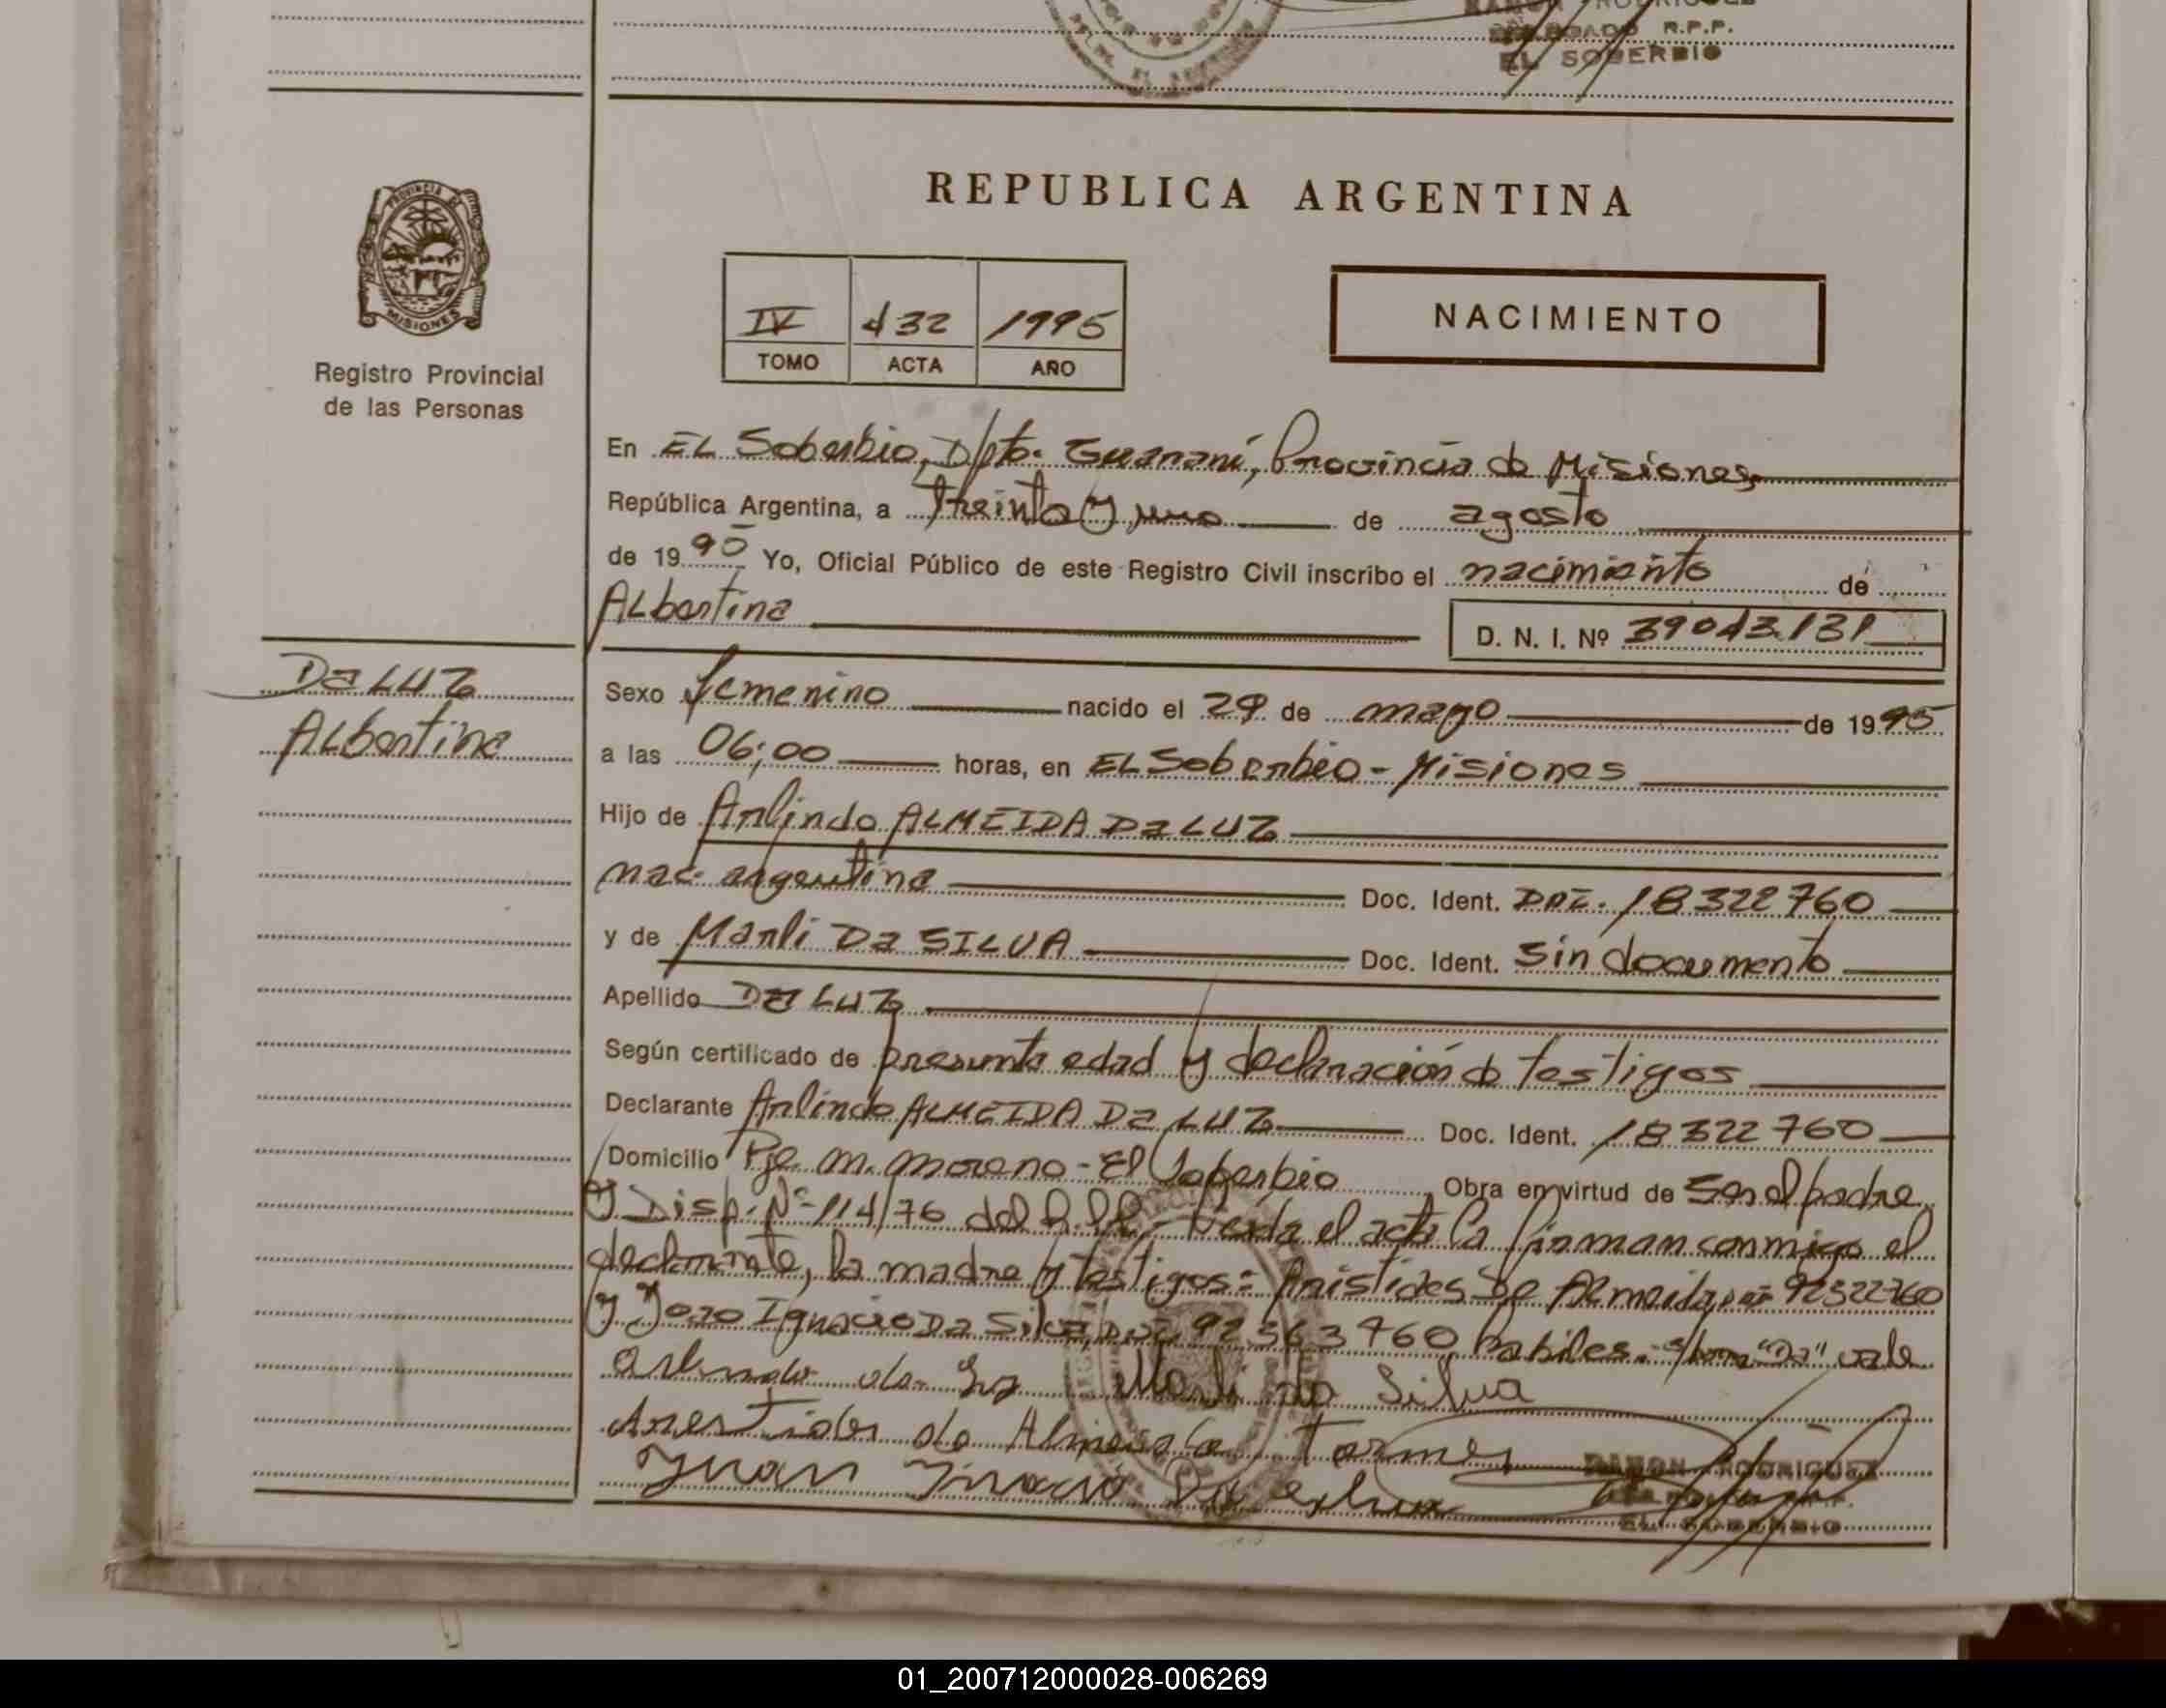 RAMON RODRIGUEZ
R.P.P.
EL SOBERBIO
REPUBLICA ARGENTINA
PROVINCIA
MISIONES
Registro Provincial
de las Personas
IV 432 1995
TOMO ACTA AÑO
NACIMIENTO
En EL Soberbio, Dpto. Guaraní, Provincia de Misiones
República Argentina, a treinta y uno de agosto
de 1995 Yo, Oficial Público de este Registro Civil inscribo el nacimiento de
Albertina
D. N. I. Nº 39043.131
Da LUZ
Albertina
Sexo femenino nacido el 29 de mayo de 1995
a las 06:00 horas, en EL Soberbio - Misiones
Hijo de Arlindo ALMEIDA Da LUZ
nac. argentina Doc. Ident. DNI. 18322760
y de Marli Da SILVA Doc. Ident. Sin documento
Apellido Da LUZ
Según certificado de presunta edad y declaración de testigos
Declarante Arlindo ALMEIDA Da LUZ Doc. Ident. 18322760
Domicilio Pje. M. Moreno - El Soberbio Obra en virtud de Ser el padre
y Disp. Nº 114/76 del R.P.P. - Leida el acta la firman conmigo el
declarante, la madre y testigos: Aristides De Almeida 92322760
y Joao Ignacio Da Silva, 92363760, habiles. "Da" vale
Arlindo da Luz Marli da Silva
Arestides de Almeida Tormes
Juan Inacio Da Silva
RAMON RODRIGUEZ
EL SOBERBIO
01_200712000028-006269